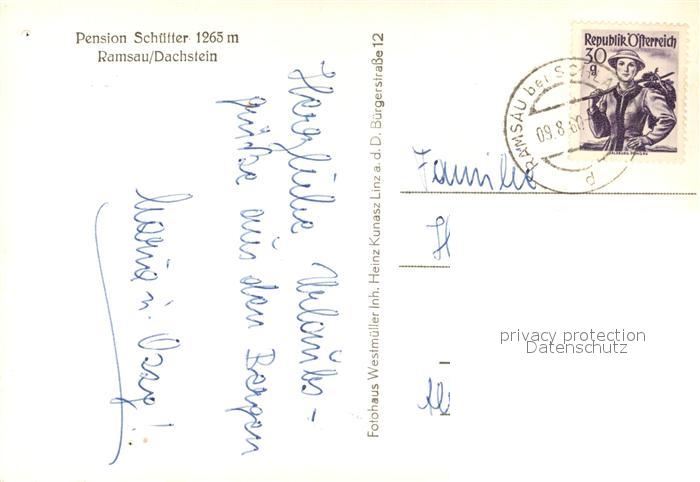 Pension Schütter 1265 m
Ramsau/Dachstein
Herzliche Urlaubs-
grüße aus den Bergen
Maria u.
Fotohaus Westmüller Inh. Heinz Kunasz Linz a. d. D. Bürgerstraße 12
Republik Österreich
30
g
SALZBURG, PONGAU
RAMSAU bei SCHLA
09.8.60
Familie
H
privacy protection
Datenschutz